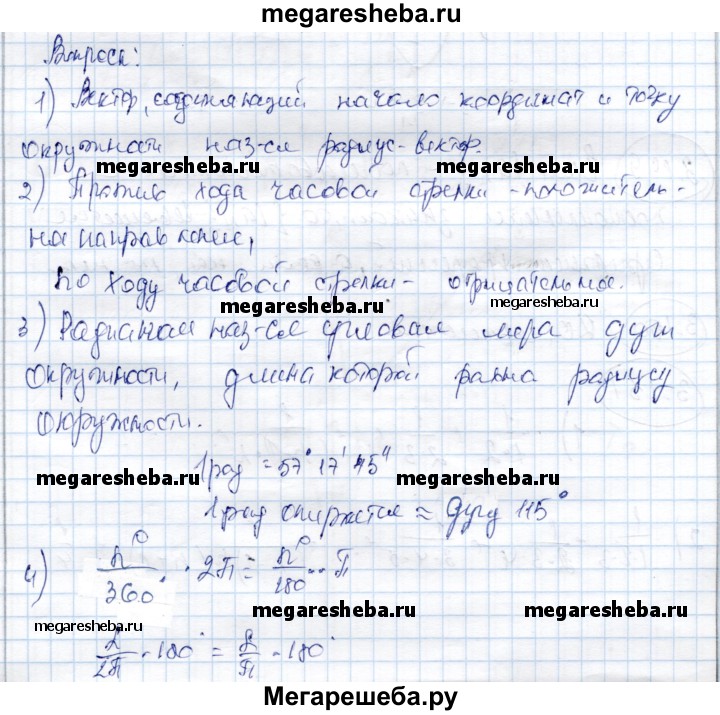 megaresheba.ru
Вопросы:
1) Вектор, соединяющий начало координат и точку
окружности наз-ся радиус-вектор.
megaresheba.ru megaresheba.ru
2) Против хода часовой стрелки - положитель-
на направление,
по ходу часовой стрелки - отрицательное.
megaresheba.ru megaresheba.ru
3) Радианом наз-ся угловая мера дуги
окружности, длина которой равна радиусу
окружности.
1 рад = 57° 17' 45"
megaresheba.ru megaresheba.ru
1 рад опирается ≈ дугу 115°
4) n°/360° · 2П = n°/180 · П
megaresheba.ru megaresheba.ru megaresheba.ru
2/2П · 180° = 2/П · 180°
Мегарешеба.ру